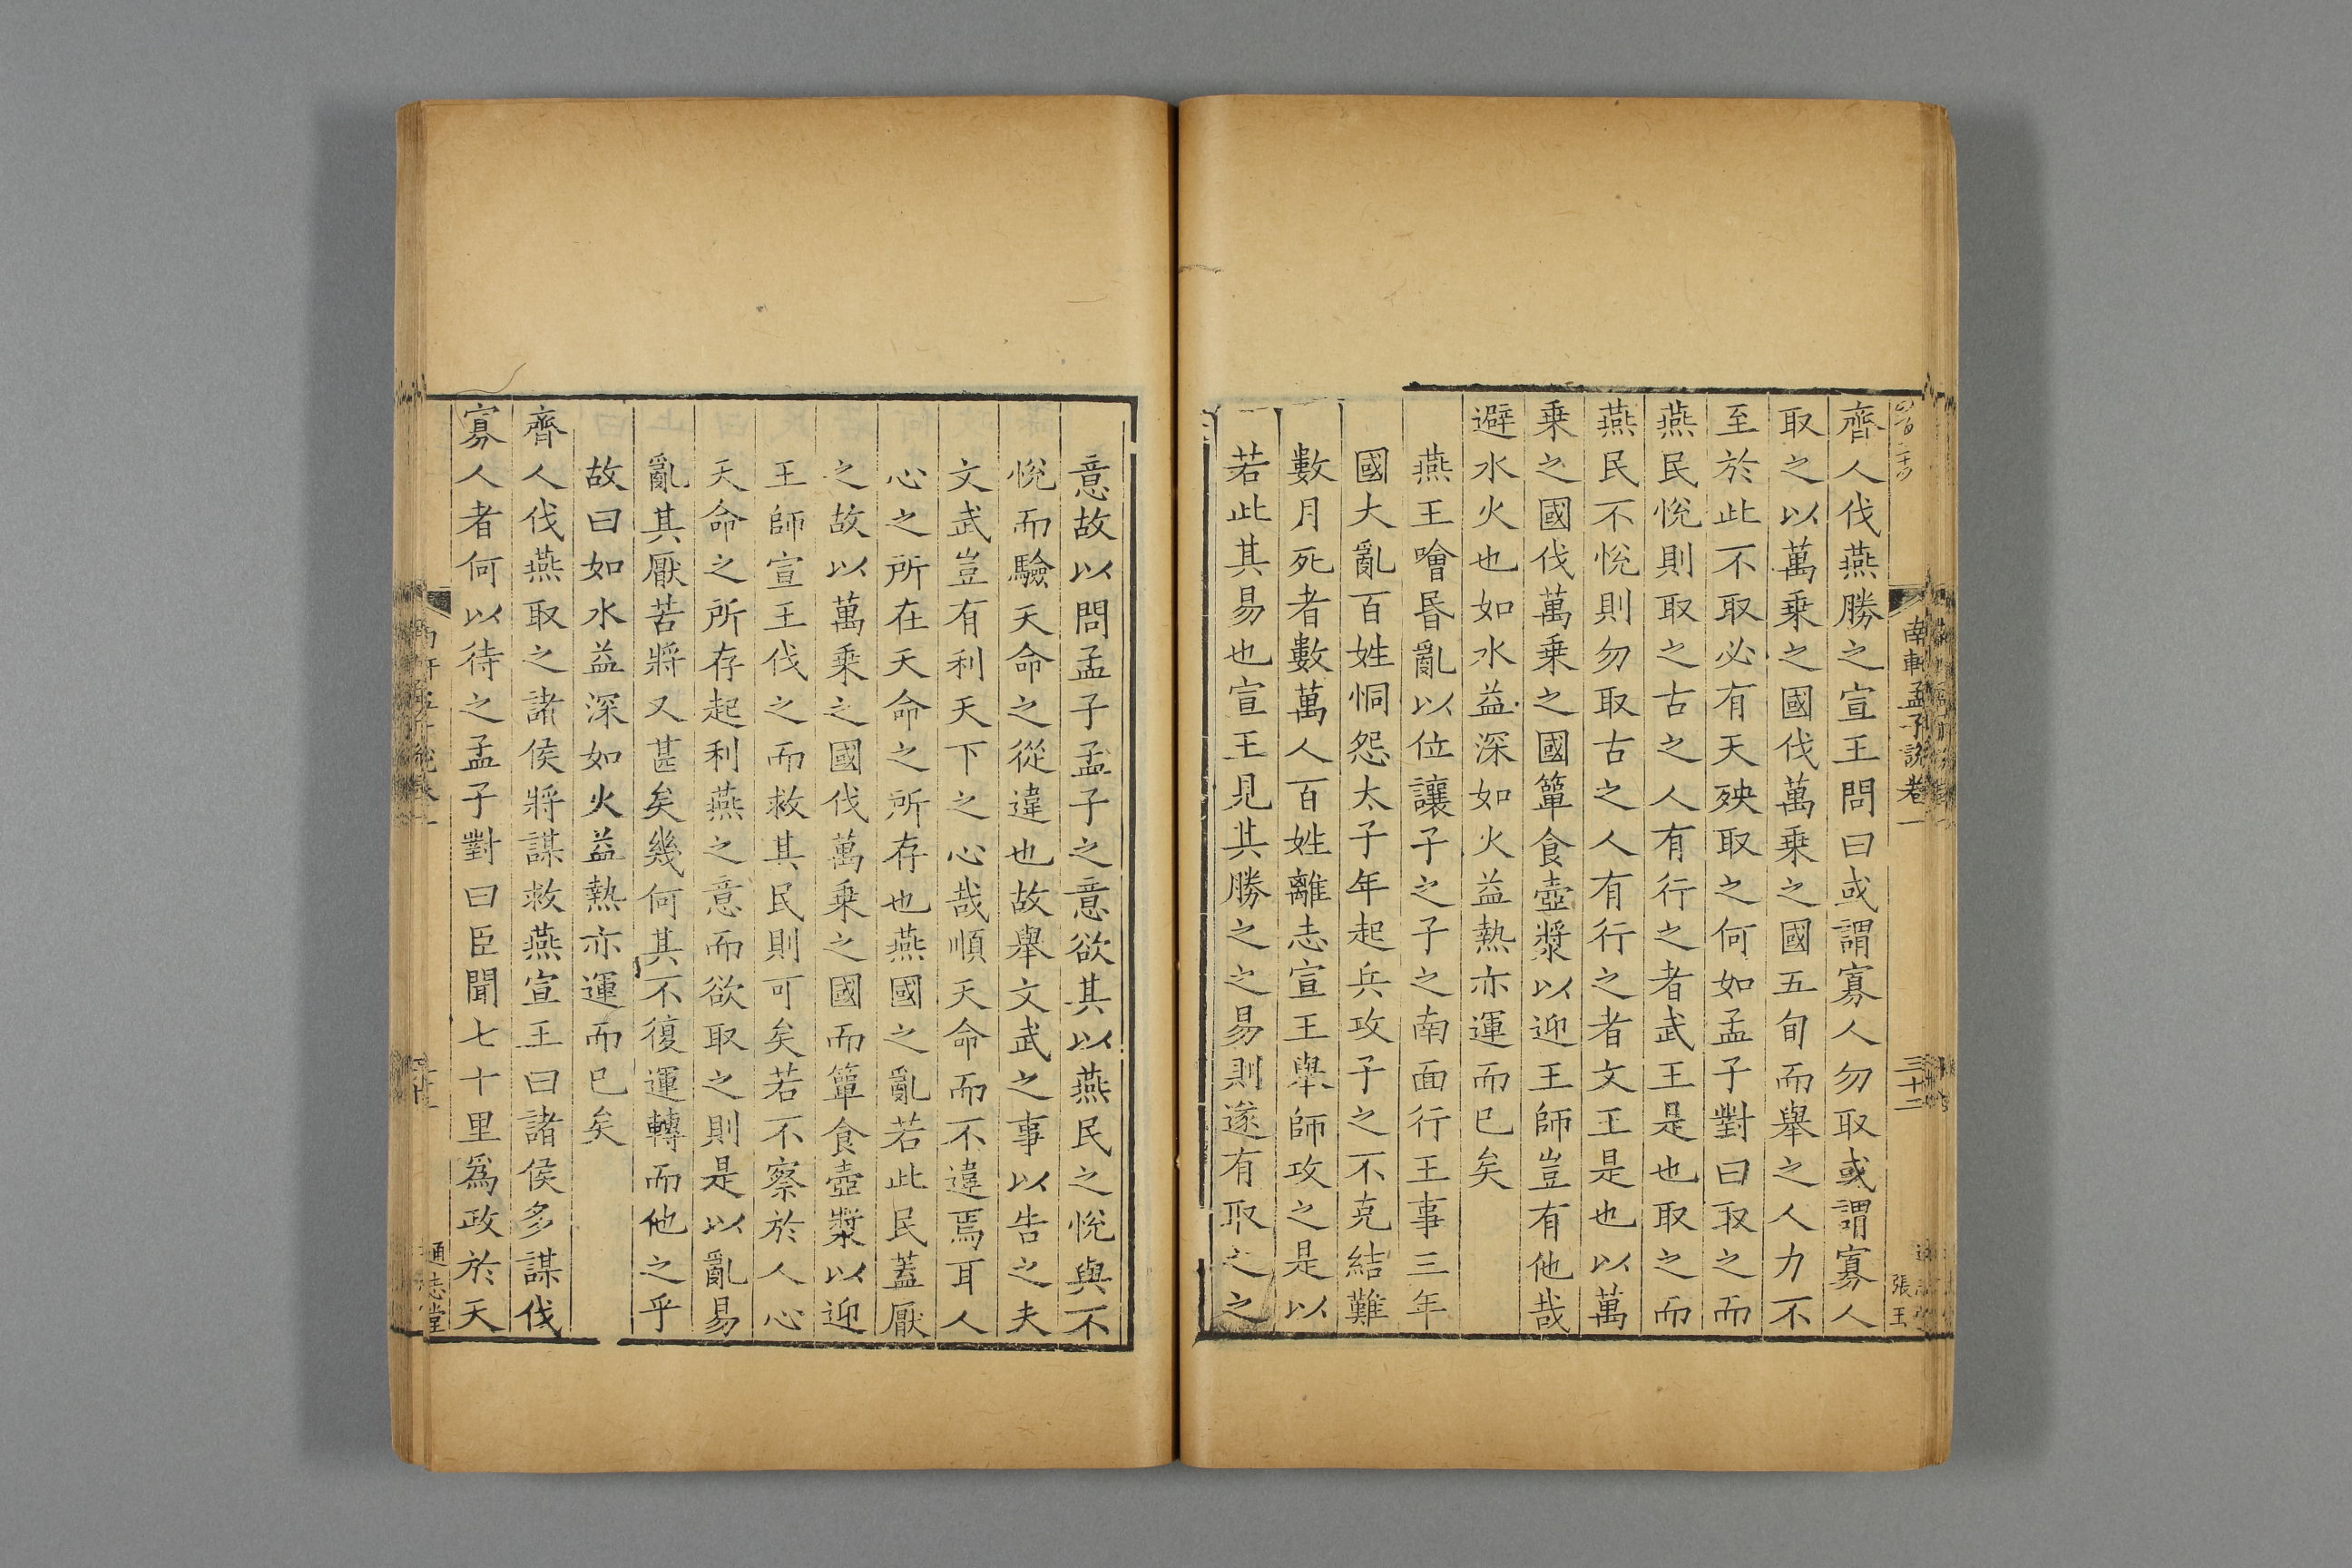 南軒孟子說卷一
三十二
張玉
齊人伐燕勝之宣王問曰或謂寡人勿取或謂寡人
取之以萬乗之國伐萬乗之國五旬而舉之人力不
至於此不取必有天殃取之何如孟子對曰取之而
燕民悅則取之古之人有行之者武王是也取之而
燕民不悅則勿取古之人有行之者文王是也以萬
乗之國伐萬乗之國簞食壺漿以迎王師豈有他哉
避水火也如水益深如火益熱亦運而已矣
燕王噲昬亂以位讓子之子之南面行王事三年
國大亂百姓恫怨太子年起兵攻子之不克結難
數月死者數萬人百姓離志宣王舉師攻之是以
若此其易也宣王見其勝之之易則遂有取之之
意故以問孟子孟子之意欲其以燕民之悅與不
悅而驗天命之從違也故舉文武之事以告之夫
文武豈有利天下之心哉順天命而不違焉耳人
心之所在天命之所存也燕國之亂若此民蓋厭
之故以萬乗之國伐萬乗之國而簞食壺漿以迎
王師宣王伐之而救其民則可矣若不察於人心
天命之所存起利燕之意而欲取之則是以亂易
亂其厭苦將又甚矣幾何其不復運轉而他之乎
故曰如水益深如火益熱亦運而已矣
齊人伐燕取之諸侯將謀救燕宣王曰諸侯多謀伐
寡人者何以待之孟子對曰臣聞七十里爲政於天
通志堂